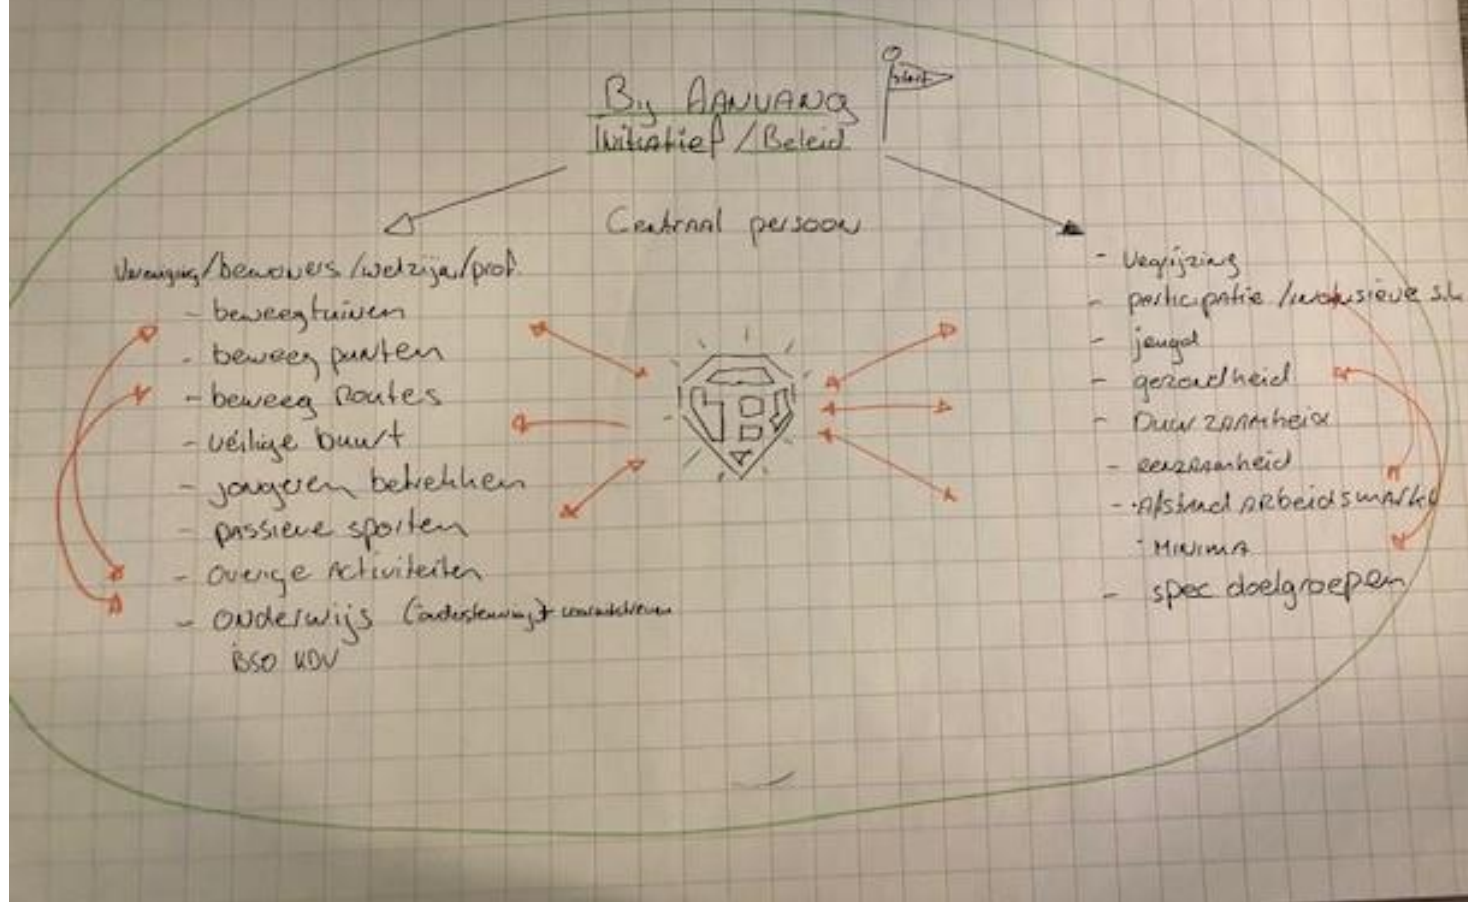 Bij AANVANG
start
Initiatief / Beleid
Centraal persoon
Vereniging/bewoners/welzijn/prof.
- beweegtuinen
- beweeg punten
- beweeg Routes
- veilige buurt
- jongeren betrekken
- passieve sporten
- overige Activiteiten
- onderwijs (ondersteuning)+
BSO KDV
- Vergrijzing
- participatie /inclusieve s.l.
- jeugd
- gezondheid
- Duurzaamheid
- eenzaamheid
- · Afstand ARbeidsmarkt
· MINIMA
- spec doelgroepen